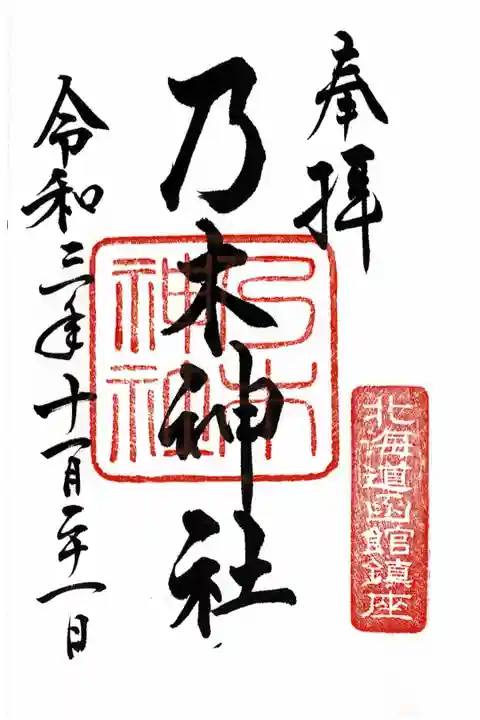 奉拝
北海道函館鎮座
乃木神社
乃木神社
令和三年十一月二十一日